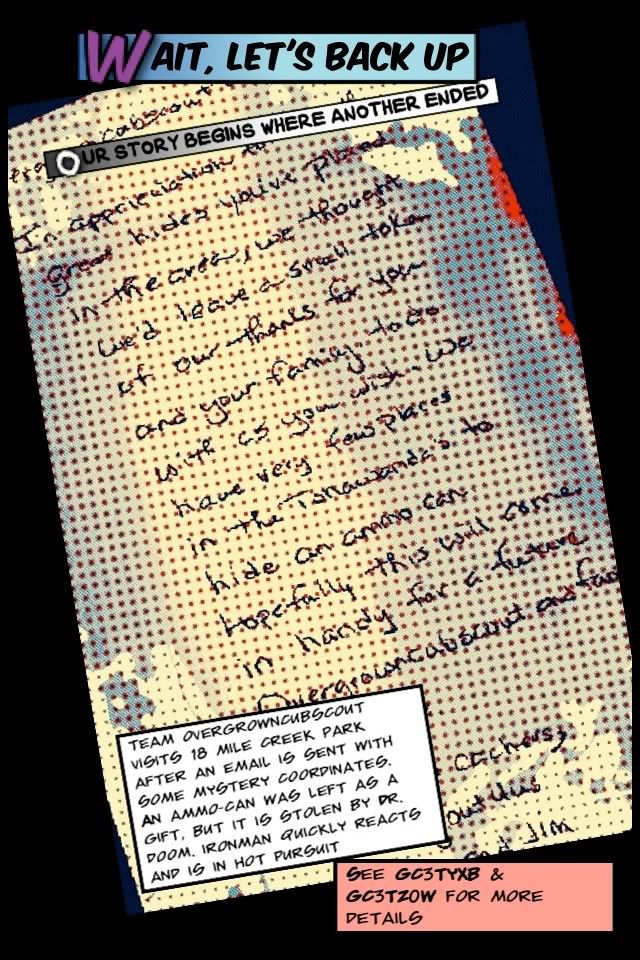 WAIT, LET'S BACK UP
OUR STORY BEGINS WHERE ANOTHER ENDED
In appreciation
great hides you've placed
in the area, we thought
we'd leave a small token
of our thanks for you
and your family to do
with as you wish. We
have very few places
in the Tonawanda's to
hide an ammo can.
Hopefully this will come
in handy for a future
Overgrowncubscout and
TEAM OVERGROWNCUBSCOUT
VISITS 18 MILE CREEK PARK
AFTER AN EMAIL IS SENT WITH
SOME MYSTERY COORDINATES.
AN AMMO-CAN WAS LEFT AS A
GIFT, BUT IT IS STOLEN BY DR.
DOOM. IRONMAN QUICKLY REACTS
AND IS IN HOT PURSUIT
cachers,
out thu
and Jim
SEE GC3TYXB &
GC3TZ0W FOR MORE
DETAILS